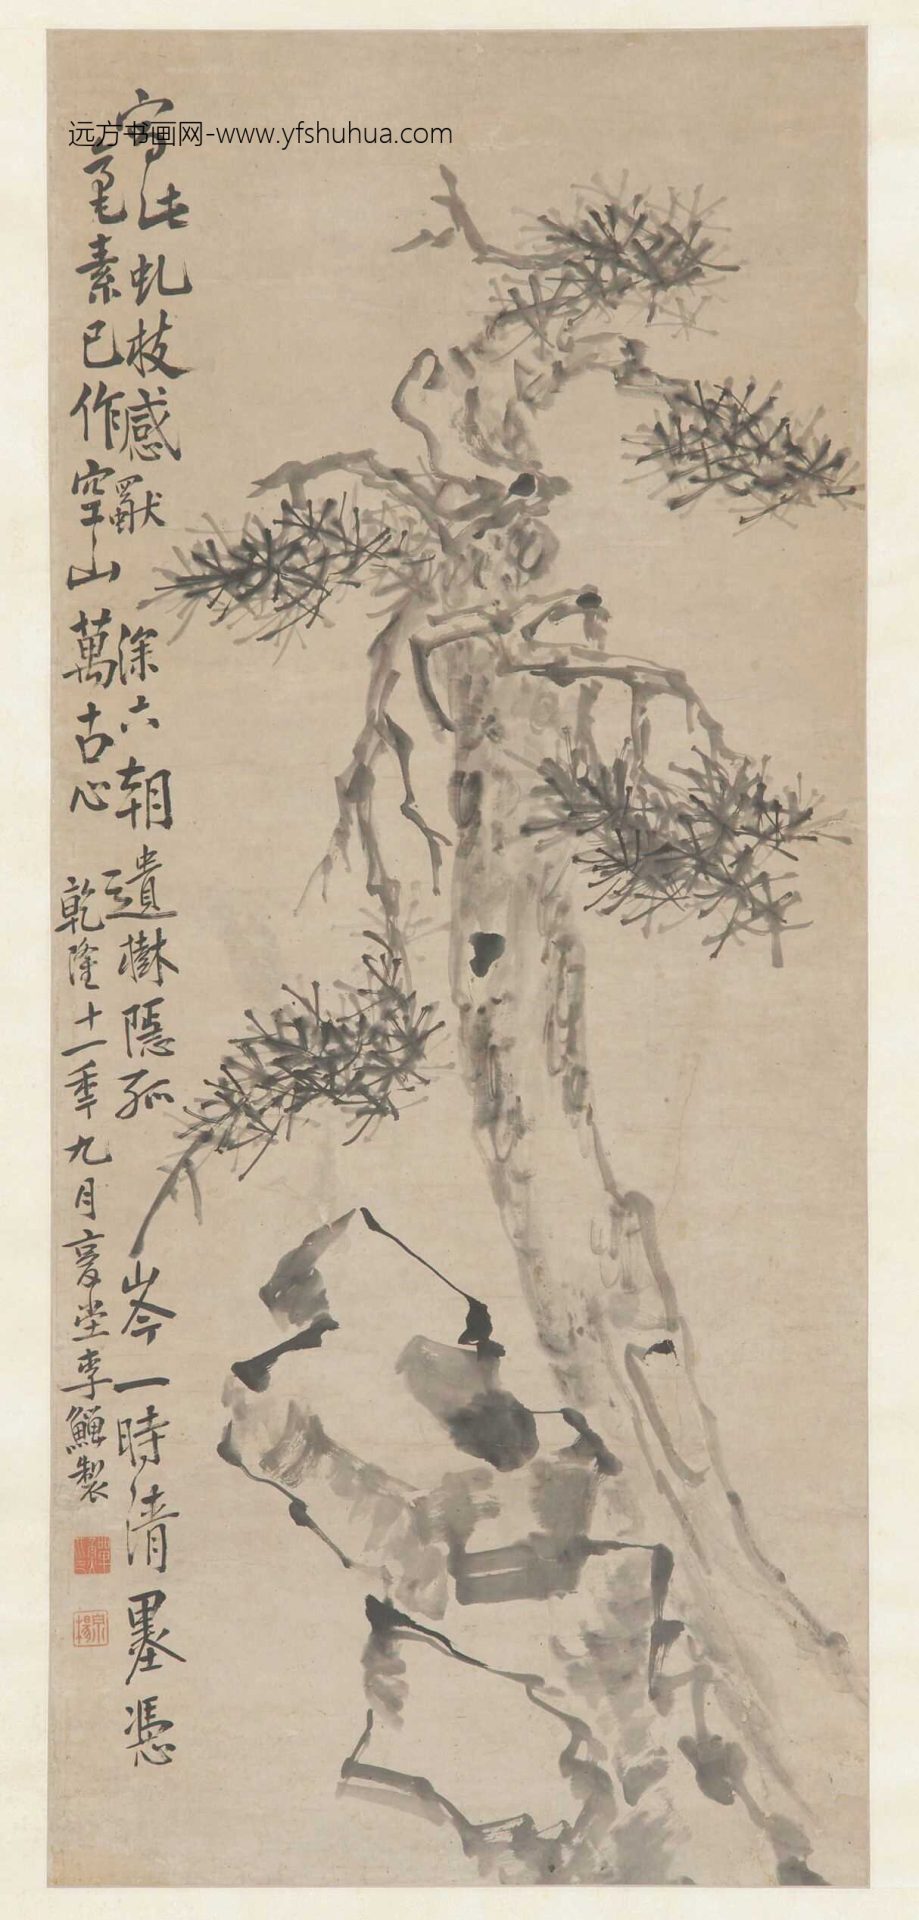 远方书画网-www.yfshuhua.com
寫法虬枝感歎深六朝遺樹隱孤岑一時清墨憑
毫素已作空山萬古心
乾隆十一年九月李鱓製